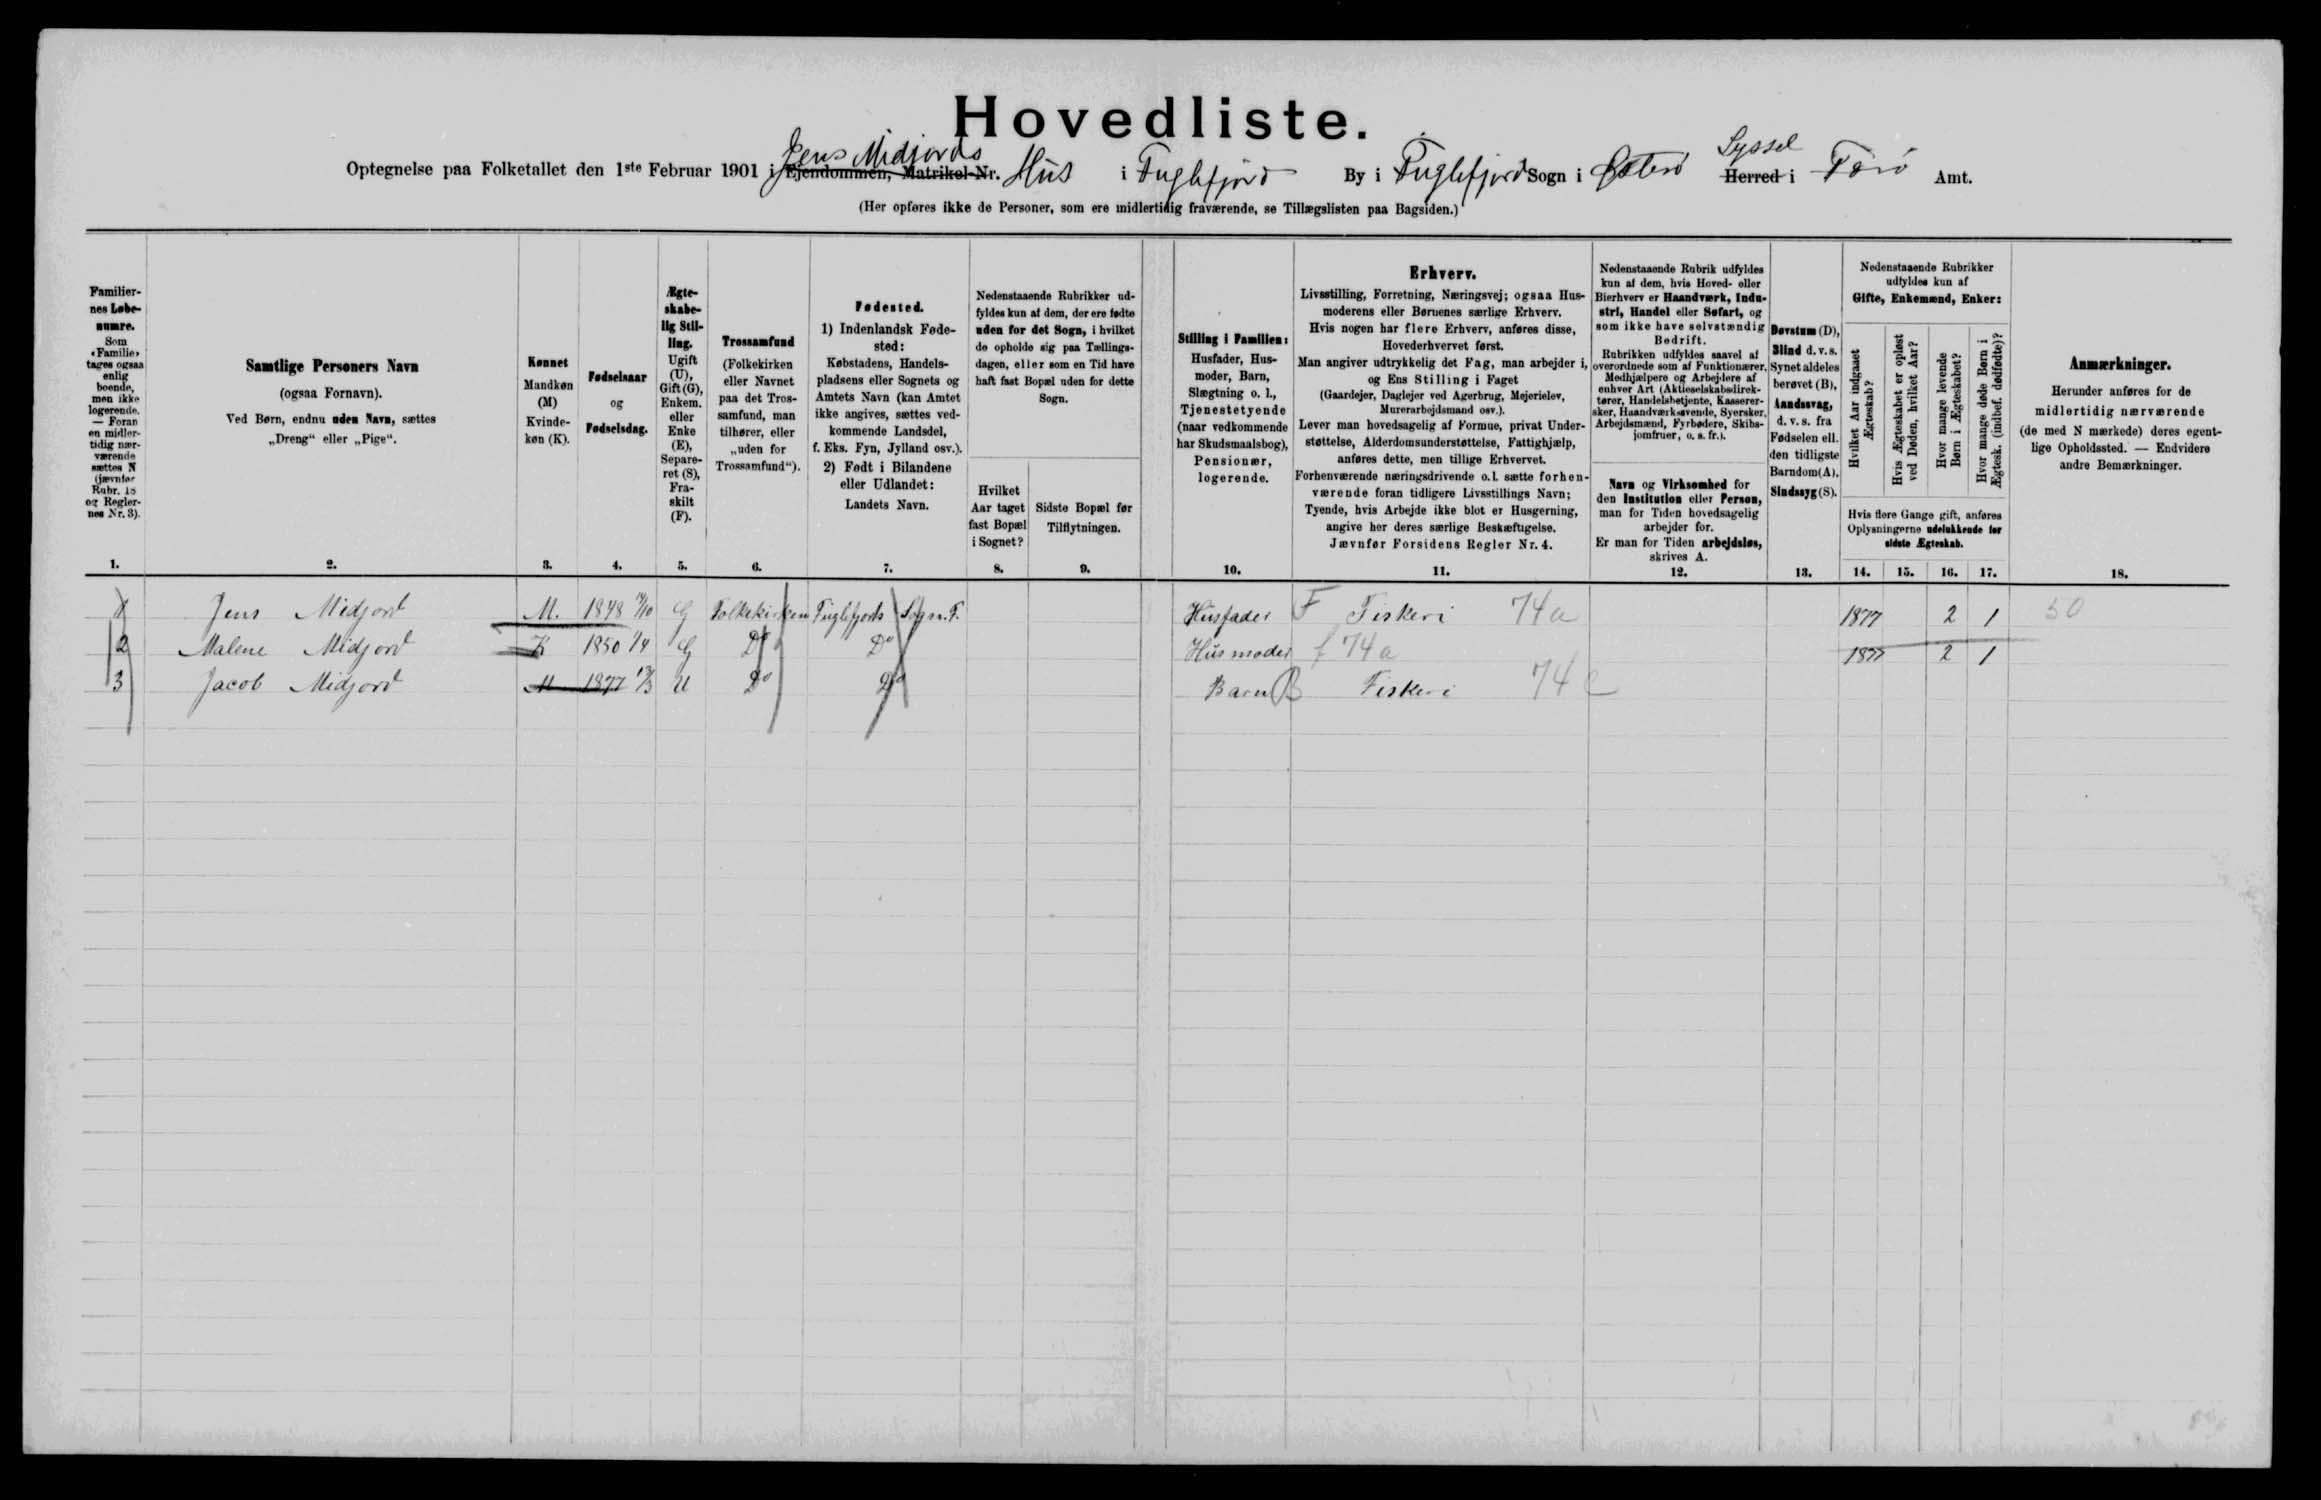 Hovedliste.
Optegnelse paa Folketallet den 1ste Februar 1901 i Ejendommen, Matrikel-Nr. Jens Midjords Hus i Fuglefjord By i Fuglefjord Sogn i Østerø Herred Syssel i Færø Amt.
(Her opføres ikke de Personer, som ere midlertidig fraværende, se Tillægslisten paa Bagsiden.)
Familiernes Løbenumre.
Som «Familie» tages ogsaa enlig boende, men ikke logerende. — Foran en midlertidig nærværende sættes N (jævnfør Rubr. 18 og Reglernes Nr. 3).
1.
Samtlige Personers Navn
(ogsaa Fornavn).
Ved Børn, endnu uden Navn, sættes
„Dreng“ eller „Pige“.
2.
Kønnet
Mandkøn
(M)
Kvinde-
køn (K).
3.
Fødselsaar
og
Fødselsdag.
4.
Ægte-
skabe-
lig Stil-
ling.
Ugift
(U),
Gift (G),
Enkem.
eller
Enke
(E),
Separe-
ret (S),
Fra-
skilt
(F).
5.
Trossamfund
(Folkekirken
eller Navnet
paa det Tros-
samfund, man
tilhører, eller
„uden for
Trossamfund“).
6.
Fødested.
1) Indenlandsk Føde-
sted:
Købstadens, Handels-
pladsens eller Sognets og
Amtets Navn (kan Amtet
ikke angives, sættes ved-
kommende Landsdel,
f. Eks. Fyn, Jylland osv.).
2) Født i Bilandene
eller Udlandet:
Landets Navn.
7.
Nedenstaaende Rubrikker ud-
fyldes kun af dem, der ere fødte
uden for det Sogn, i hvilket
de opholde sig paa Tællings-
dagen, eller som en Tid have
haft fast Bopæl uden for dette
Sogn.
Hvilket
Aar taget
fast Bopæl
i Sognet?
8.
Sidste Bopæl før
Tilflytningen.
9.
Stilling i Familien:
Husfader, Hus-
moder, Barn,
Slægtning o. l.,
Tjenestetyende
(naar vedkommende
har Skudsmaalsbog),
Pensionær,
logerende.
10.
Erhverv.
Livsstilling, Forretning, Næringsvej; ogsaa Hus-
moderens eller Børnenes særlige Erhverv.
Hvis nogen har flere Erhverv, anføres disse,
Hovederhvervet først.
Man angiver udtrykkelig det Fag, man arbejder i,
og Ens Stilling i Faget
(Gaardejer, Daglejer ved Agerbrug, Mejerielev,
Murerarbejdsmand osv.).
Lever man hovedsagelig af Formue, privat Under-
støttelse, Alderdomsunderstøttelse, Fattighjælp,
anføres dette, men tillige Erhvervet.
Forhenværende næringsdrivende o. l. sætte forhen-
værende foran tidligere Livsstillings Navn;
Tyende, hvis Arbejde ikke blot er Husgerning,
angive her deres særlige Beskæftigelse.
Jævnfør Forsidens Regler Nr. 4.
11.
Nedenstaaende Rubrik udfyldes
kun af dem, hvis Hoved- eller
Bierhverv er Haandværk, Indu-
stri, Handel eller Søfart, og
som ikke have selvstændig
Bedrift.
Rubrikken udfyldes saavel af
overordnede som af Funktionærer,
Medhjælpere og Arbejdere af
enhver Art (Aktieselskabsdirek-
tører, Handelsbetjente, Kasserer-
sker, Haandværkssvende, Syersker,
Arbejdsmænd, Fyrbødere, Skibs-
jomfruer, o. s. fr.).
Navn og Virksomhed for
den Institution eller Person,
man for Tiden hovedsagelig
arbejder for.
Er man for Tiden arbejdsløs,
skrives A.
12.
Døvstum (D),
Blind d. v. s.
Synet aldeles
berøvet (B),
Aandssvag,
d. v. s. fra
Fødselen ell.
den tidligste
Barndom (A),
Sindssyg (S).
13.
Nedenstaaende Rubrikker
udfyldes kun af
Gifte, Enkemænd, Enker:
Hvilket Aar indgaaet Ægteskab?
Hvis Ægteskabet er opløst ved Døden, hvilket Aar?
Hvor mange levende Børn i Ægteskabet?
Hvor mange døde Børn i Ægtesk. (indbef. dødfødte)?
Hvis flere Gange gift, anføres
Oplysningerne udelukkende for
sidste Ægteskab.
14. 15. 16. 17.
Anmærkninger.
Herunder anføres for de
midlertidig nærværende
(de med N mærkede) deres egent-
lige Opholdssted. — Endvidere
andre Bemærkninger.
18.
1 Jens Midjord M. 1848 G Folkekirken Fuglefjords Sogn. F. Husfader F Fiskeri 74a 1877 2 1 50
2 Malene Midjord K 1850 1/4 G Do Do Husmoder f 74a 1877 2 1
3 Jacob Midjord M 1877 U Do Do Barn B Fiskeri 74c